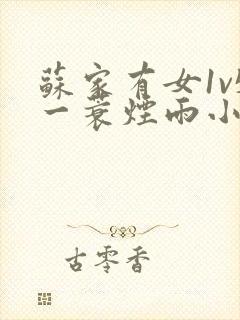 蘇家有女1v
一蓑煙雨小
古零香